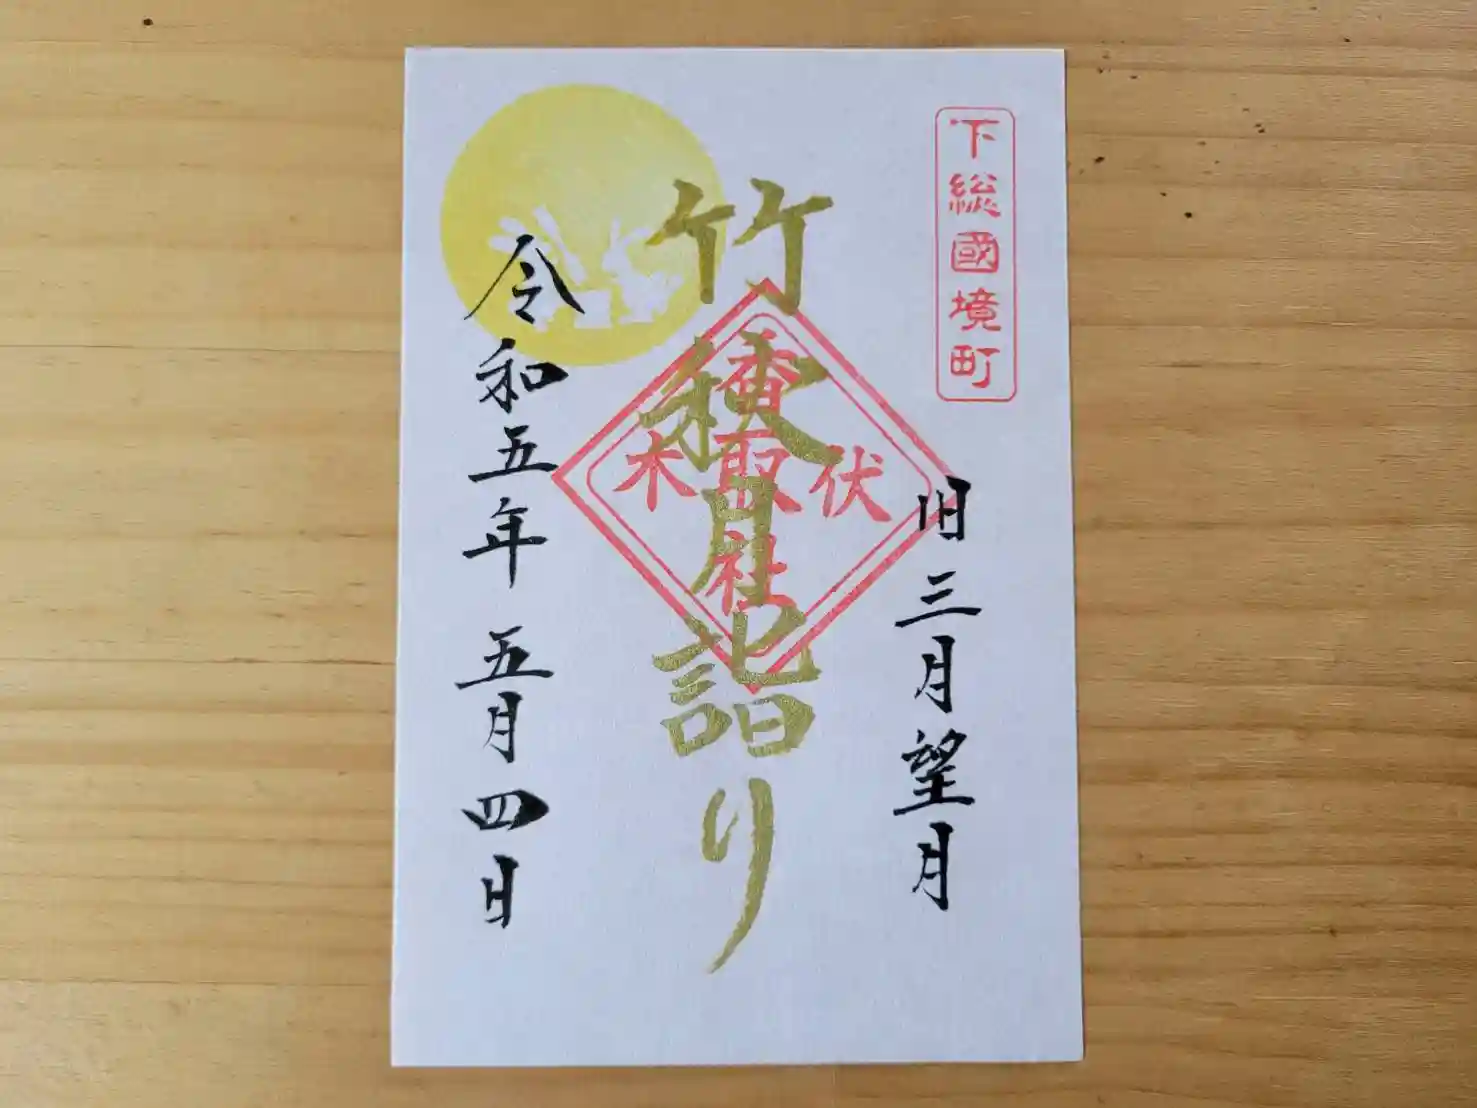 下総國境町
旧三月望月
竹秋月詣り
伏木
香取社
令和五年五月四日